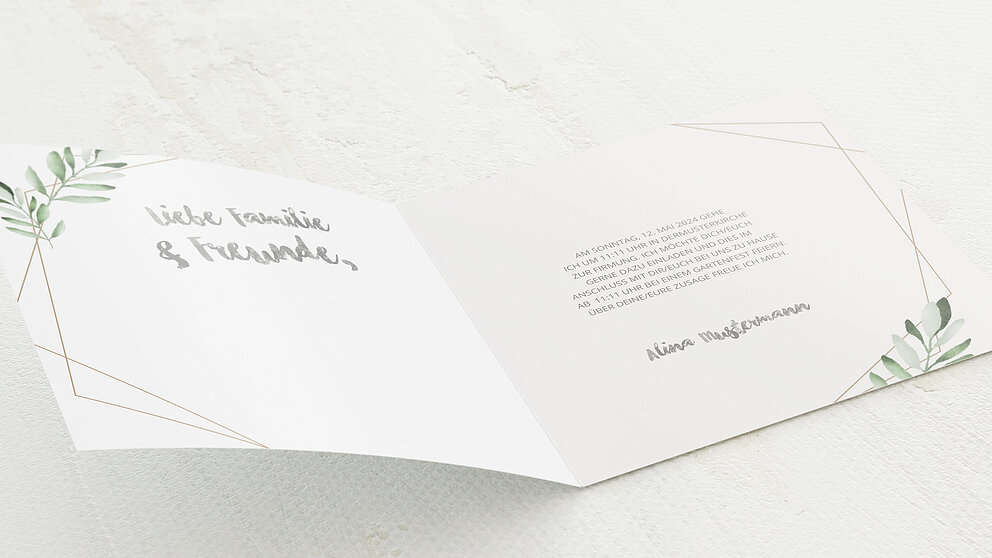 Liebe Familie
& Freunde,
AM SONNTAG, 12. MAI 2024 GEHE
ICH UM 11:11 UHR IN DERMUSTERKIRCHE
ZUR FIRMUNG. ICH MÖCHTE DICH/EUCH
GERNE DAZU EINLADEN UND DIES IM
ANSCHLUSS MIT DIR/EUCH BEI UNS ZU HAUSE
AB 11:11 UHR BEI EINEM GARTENFEST FEIERN.
ÜBER DEINE/EURE ZUSAGE FREUE ICH MICH.
Alina Mustermann